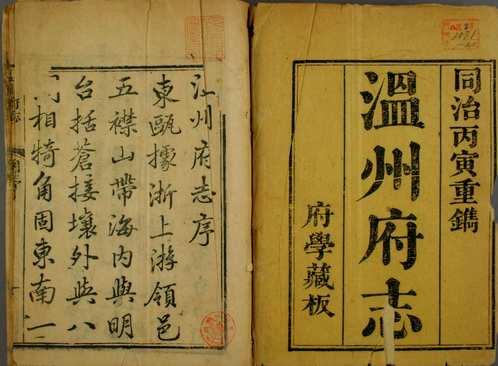 同治丙寅重鐫
溫州府志
府學藏板
州府志序
東甌據浙上游領邑
五襟山帶海內與明
台括蒼接壤外與八
相犄角固東南一